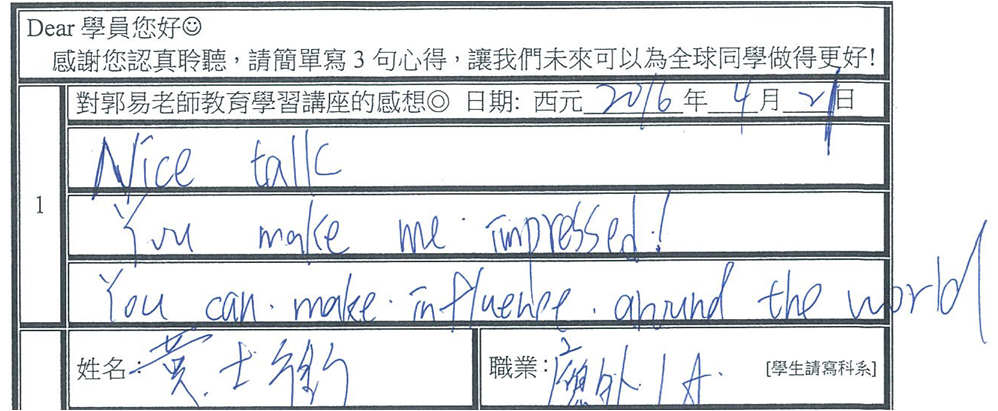 Dear 學員您好☺
感謝您認真聆聽，請簡單寫 3 句心得，讓我們未來可以為全球同學做得更好!
對郭易老師教育學習講座的感想◎ 日期: 西元 2016 年 4 月 21 日
1
Nice talk
You make me impressed!
You can make influence around the world
姓名: 黃士衡 職業: 應外 1A [學生請寫科系]